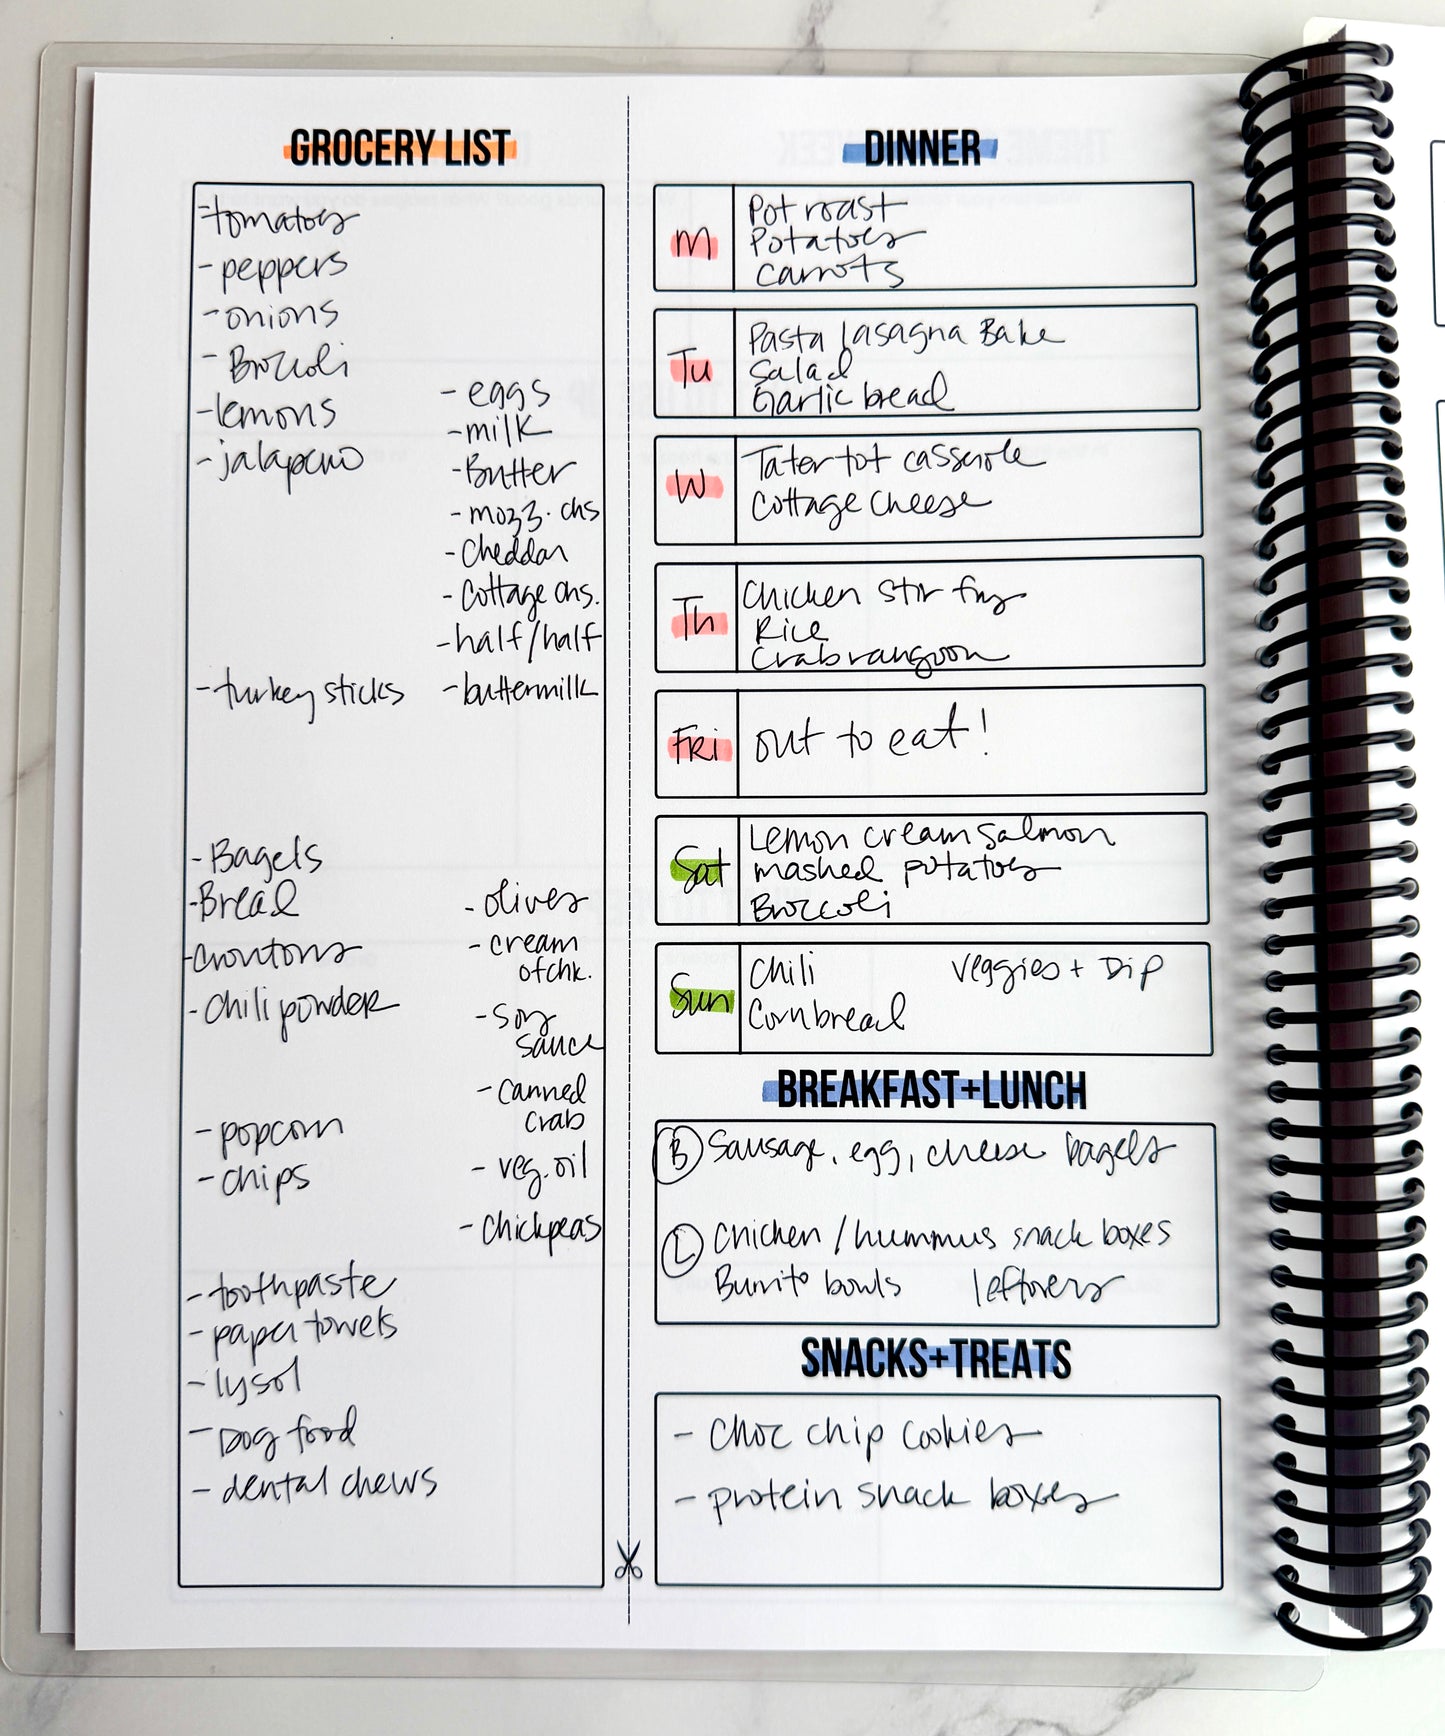 GROCERY LIST
- tomatoes
- peppers
- onions
- Broccoli
- lemons
- jalapeno
- eggs
- milk
- Butter
- mozz. chs
- Cheddar
- Cottage chs.
- half/half
- turkey sticks
- buttermilk
- Bagels
- Bread
- Croutons
- Chili powder
- olives
- cream
of chk.
- Soy
sauce
- canned
crab
- popcorn
- chips
- veg. oil
- Chickpeas
- toothpaste
- paper towels
- lysol
- Dog food
- dental chews
DINNER
M
Pot roast
Potatoes
Carrots
Tu
Pasta lasagna Bake
Salad
Garlic bread
W
Tater tot casserole
Cottage Cheese
Th
Chicken stir fry
Rice
Crab rangoon
FRi
out to eat!
Sat
Lemon cream salmon
mashed potatoes
Broccoli
Sun
Chili Veggies + Dip
Cornbread
BREAKFAST+LUNCH
B Sausage, egg, cheese bagels
L Chicken / hummus snack boxes
Burrito bowls leftovers
SNACKS+TREATS
- Choc chip cookies
- protein snack boxes